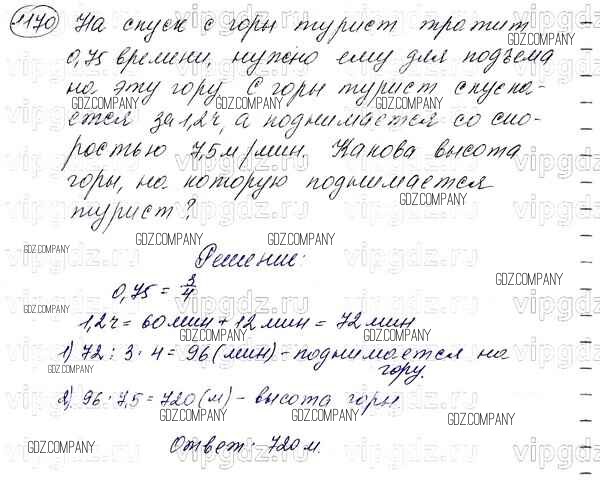 1170 На спуск с горы турист тратит
0,75 времени, нужно ему для подъема
на эту гору С горы турист спуска-
ется за 1,2ч, а поднимается со ско-
ростью 7,5 м/мин. Какова высота
горы, на которую поднимается
турист?
Решение:
0,75 = 3/4
1,2ч = 60мин + 12мин = 72мин
1) 72 : 3 · 4 = 96 (мин) - поднимается на
гору.
2) 96 · 7,5 = 720 (м) - высота горы
Ответ: 720 м.
GDZ.COMPANY
vipgdz.ru